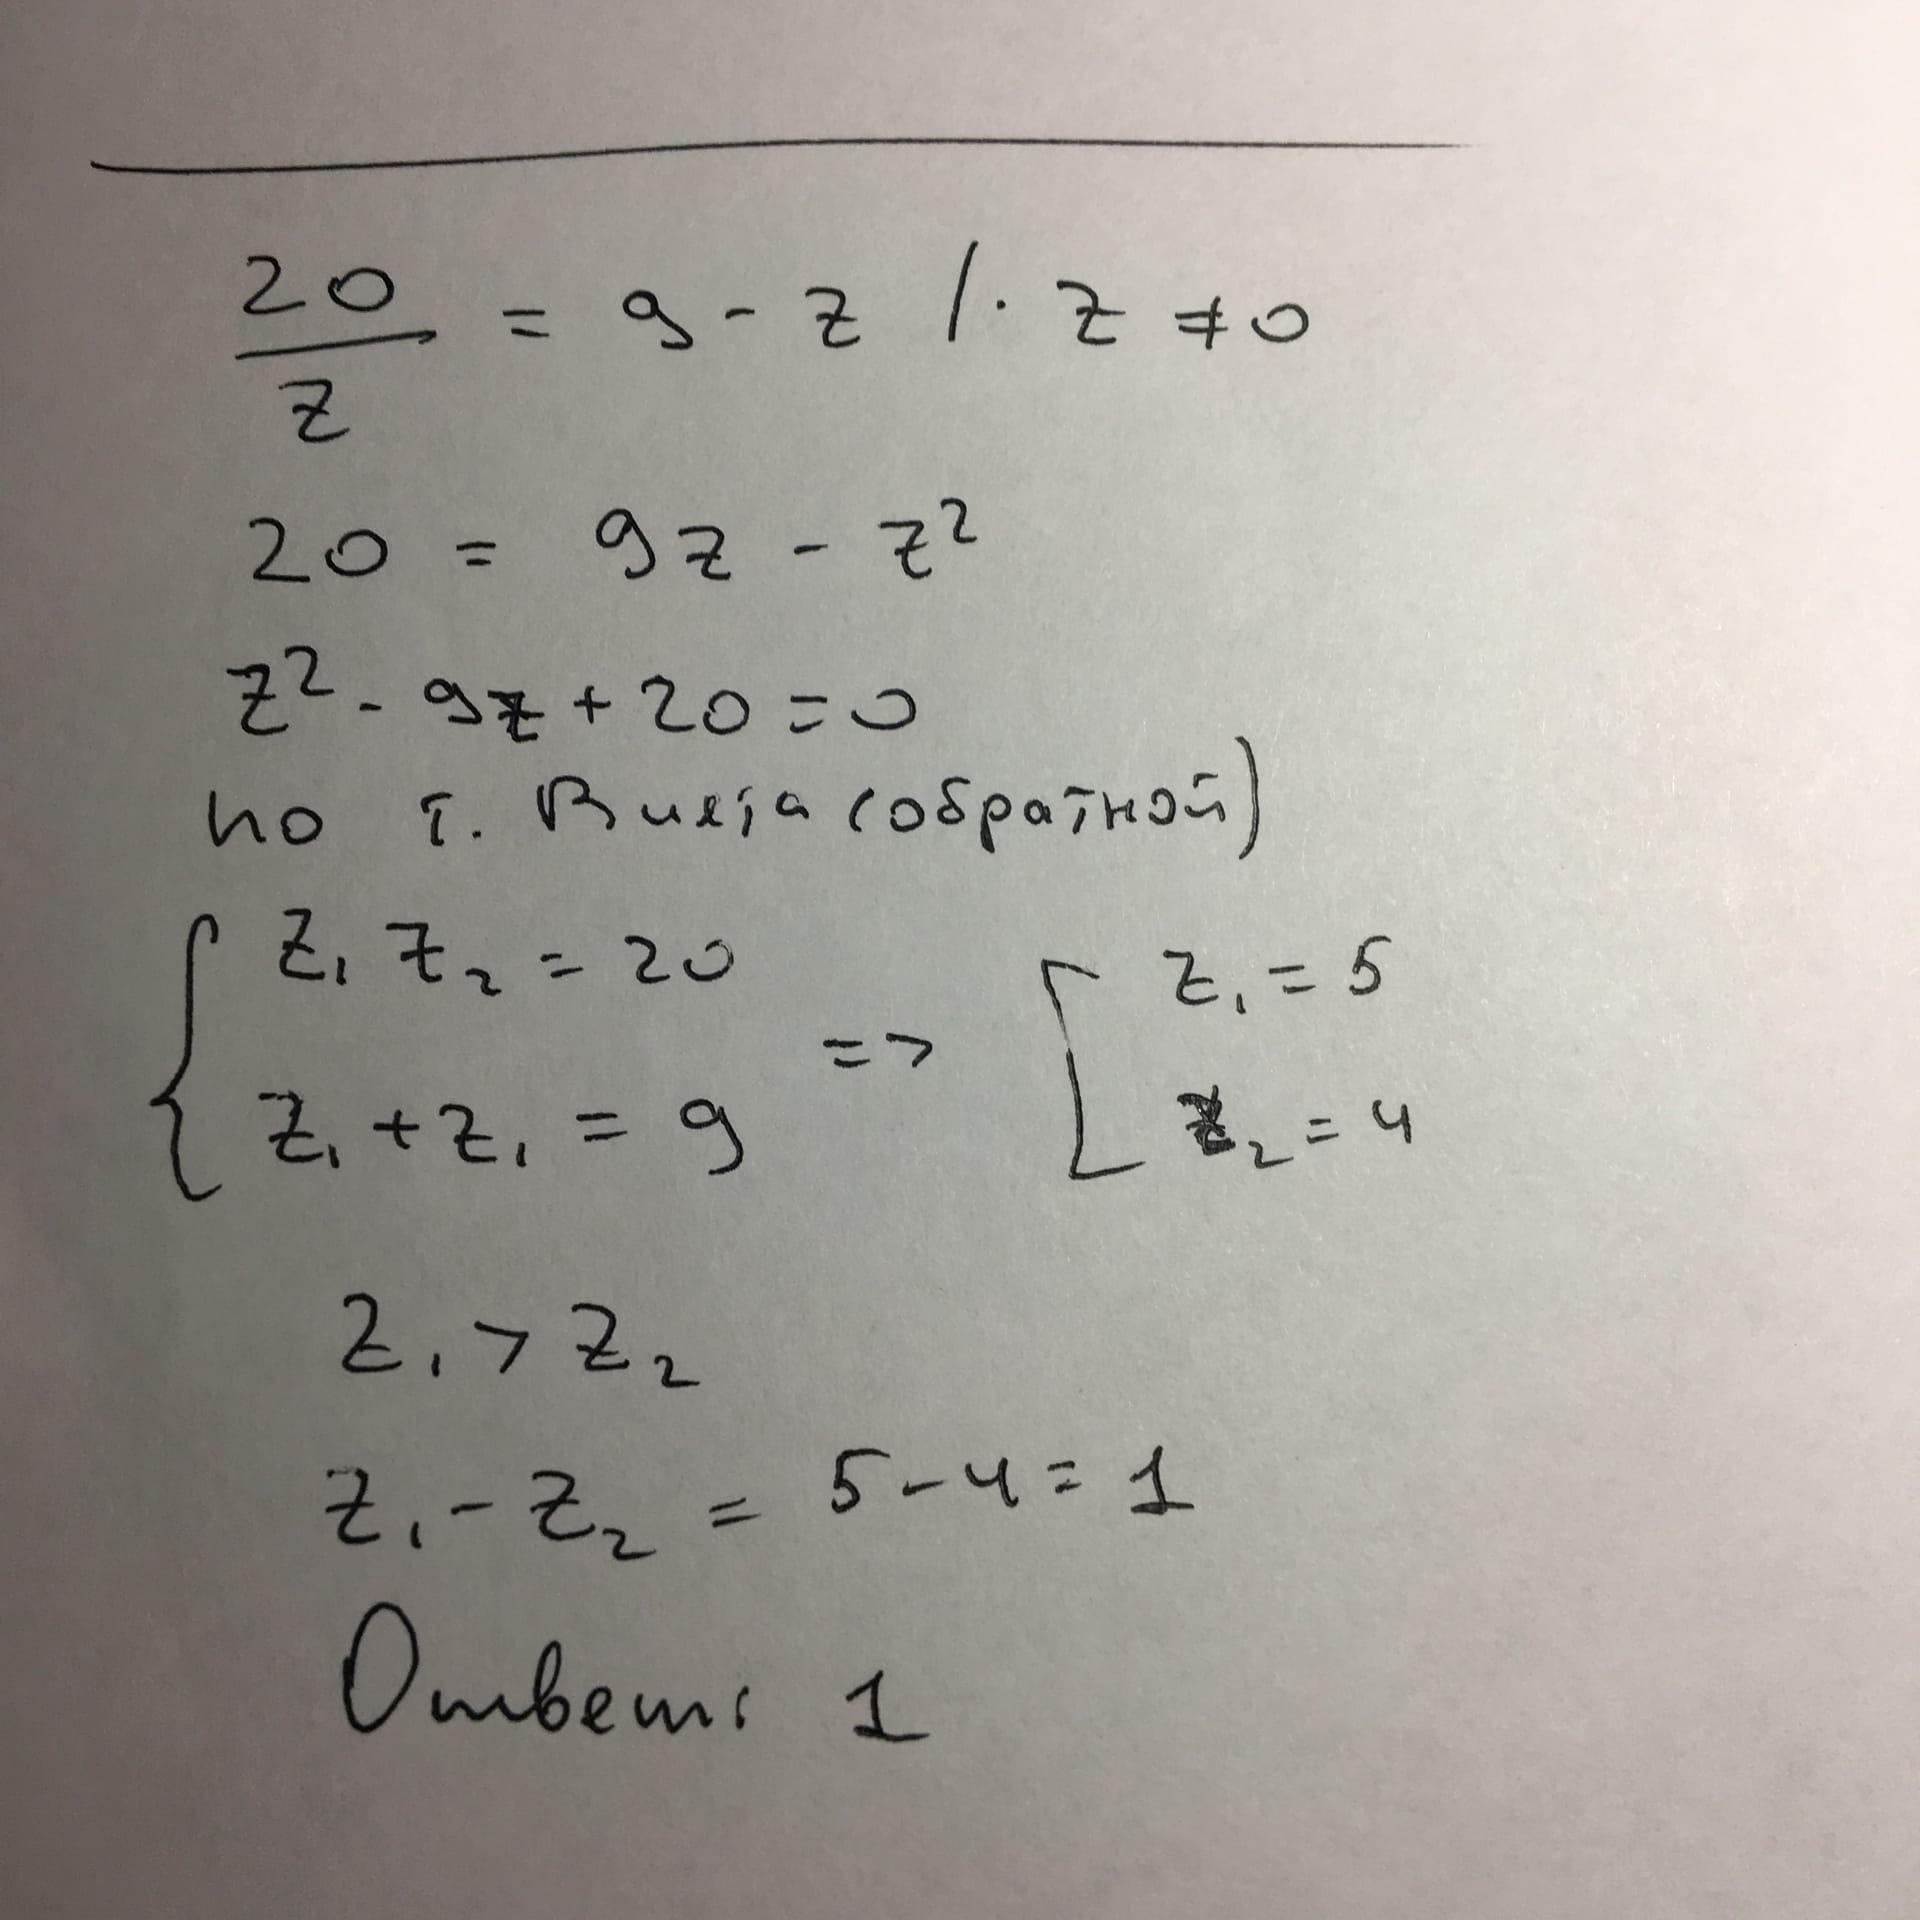 20/z = 9 - z /· z ≠ 0
20 = 9z - z²
z² - 9z + 20 = 0
по т. Виета (обратной)
{ z₁ z₂ = 20
z₁ + z₁ = 9
=> [ z₁ = 5
z₂ = 4
z₁ > z₂
z₁ - z₂ = 5 - 4 = 1
Ответ: 1